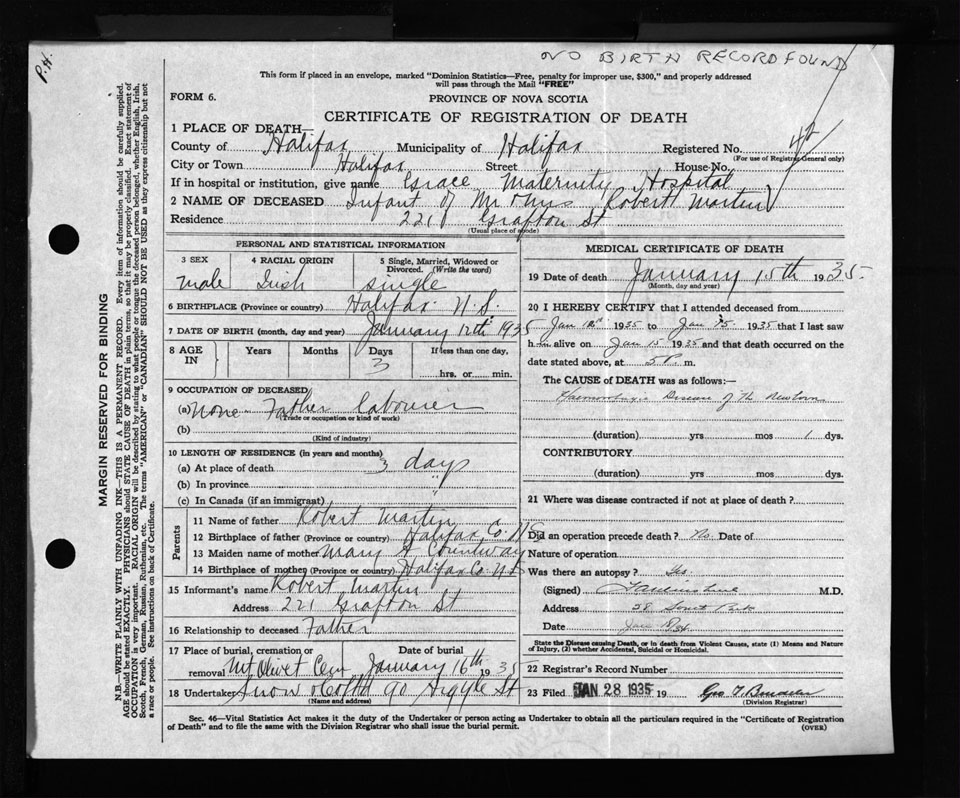 P.H.
NO BIRTH RECORD FOUND
This form if placed in an envelope, marked "Dominion Statistics—Free, penalty for improper use, $300," and properly addressed
will pass through the Mail "FREE"
FORM 6.
PROVINCE OF NOVA SCOTIA
CERTIFICATE OF REGISTRATION OF DEATH
1 PLACE OF DEATH—
County of Halifax Municipality of Halifax Registered No. 42
(For use of Registrar General only)
City or Town Halifax Street House No.
If in hospital or institution, give name Grace Maternity Hospital
2 NAME OF DECEASED Infant of Mr & Mrs Robert Martin
Residence 221 Grafton St
(Usual place of abode)
PERSONAL AND STATISTICAL INFORMATION
3 SEX 4 RACIAL ORIGIN 5 Single, Married, Widowed or
Divorced. (Write the word)
male Irish single
6 BIRTHPLACE (Province or country) Halifax N.S.
7 DATE OF BIRTH (month, day and year) January 12th 1935
8 AGE IN Years Months Days If less than one day,
3 hrs. or min.
9 OCCUPATION OF DECEASED
(a) None - Father labourer
(Trade or occupation or kind of work)
(b)
(Kind of industry)
10 LENGTH OF RESIDENCE (in years and months)
(a) At place of death 3 days
(b) In province "
(c) In Canada (if an immigrant) "
Parents
11 Name of father Robert Martin
12 Birthplace of father (Province or country) Halifax Co. N.S.
13 Maiden name of mother Mary A
14 Birthplace of mother (Province or country) Halifax Co. N.S.
15 Informant's name Robert Martin
Address 221 Grafton St
16 Relationship to deceased Father
17 Place of burial, cremation or Date of burial
removal Mt Olivet Cem January 16th 1935
18 Undertaker Snow & Co Ltd 90 Argyle St
(Name and address)
MEDICAL CERTIFICATE OF DEATH
19 Date of death January 15th 1935.
(Month, day and year)
20 I HEREBY CERTIFY that I attended deceased from
Jan 12th 1935 to Jan 15 1935 that I last saw
h im alive on Jan 15 1935 and that death occurred on the
date stated above, at 5 P. m.
The CAUSE of DEATH was as follows:—
Haemorrhagic Disease of the Newborn
(duration) yrs mos 1 dys.
CONTRIBUTORY
(duration) yrs mos dys.
21 Where was disease contracted if not at place of death?
Did an operation precede death? No. Date of
Nature of operation
Was there an autopsy? Yes
(Signed) M.D.
Address 58 South Park
Date Jan
State the Disease causing Death, or in death from Violent Causes, state (1) Means and
Nature of Injury, (2) whether Accidental, Suicidal or Homicidal.
22 Registrar's Record Number
23 Filed JAN 28 1935 19 Geo
(Division Registrar)
Sec. 46—Vital Statistics Act makes it the duty of the Undertaker or person acting as Undertaker to obtain all the particulars required in the "Certificate of Registration
of Death" and to file the same with the Division Registrar who shall issue the burial permit.
(OVER)
MARGIN RESERVED FOR BINDING
N.B.—WRITE PLAINLY WITH UNFADING INK—THIS IS A PERMANENT RECORD. Every item of information should be carefully supplied.
AGE should be stated EXACTLY. PHYSICIANS should STATE CAUSE OF DEATH in plain terms, so that it may be properly classified. Exact statement of
OCCUPATION is very important. RACIAL ORIGIN will be described by stating to what people or tongue the deceased person belonged, whether English, Irish,
Scotch, French, German, Russian, Ruthenian, etc. The terms "AMERICAN" or "CANADIAN" SHOULD NOT BE USED as they express citizenship but not
a race or people. See instructions on back of Certificate.